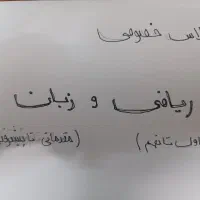 لاس خصوصی
ریاضی و زبان
اول تا نهم) (مقدماتی تا پیشرفته